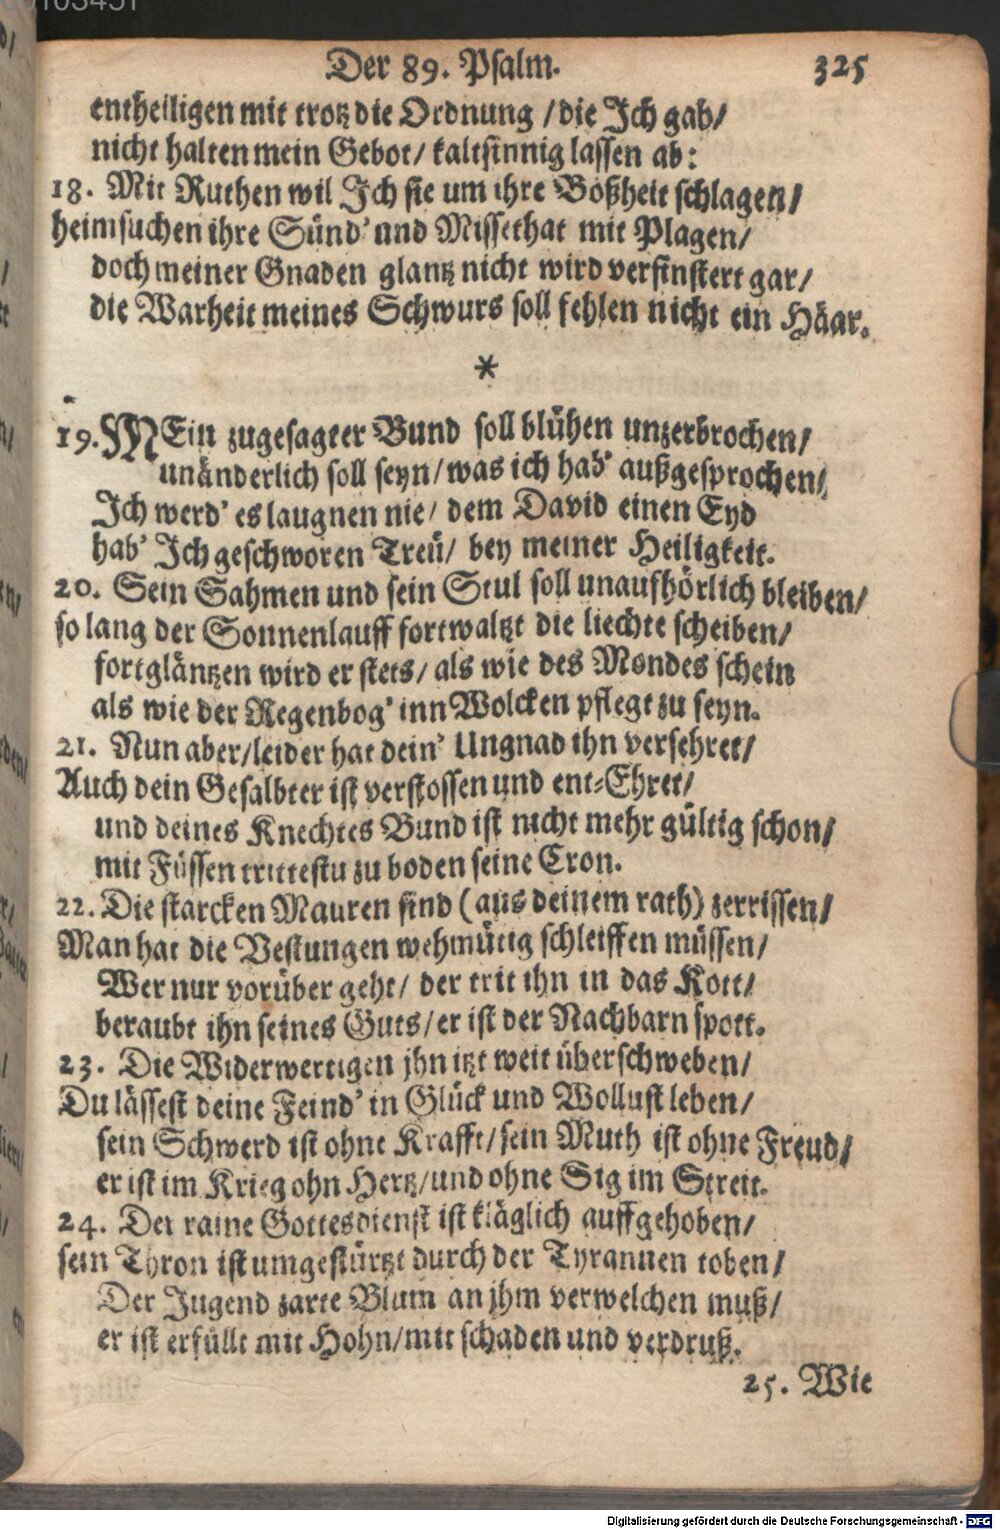 Der 89. Psalm. 325
entheiligen mit trotz die Ordnung / die Ich gab/
nicht halten mein Gebot/ kaltsinnig lassen ab:
18. Mit Ruthen wil Ich sie um ihre Boßheit schlagen/
heimsuchen ihre Sünd' und Missethat mit Plagen/
doch meiner Gnaden glantz nicht wird verfinstert gar/
die Warheit meines Schwurs soll fehlen nicht ein Häar.
*
19. MEin zugesagter Bund soll blühen unzerbrochen/
unänderlich soll seyn/ was ich hab' außgesprochen/
Ich werd' es laugnen nie/ dem David einen Eyd
hab' Ich geschworen Treü/ bey meiner Heiligkeit.
20. Sein Sahmen und sein Stul soll unaufhörlich bleiben/
so lang der Sonnenlauff fortwaltzt die liechte scheiben/
fortgläntzen wird er stets/ als wie des Mondes schein
als wie der Regenbog' inn Wolcken pflegt zu seyn.
21. Nun aber/ leider hat dein' Ungnad ihn versehret/
Auch dein Gesalbter ist verstossen und ent-Ehret/
und deines Knechtes Bund ist nicht mehr gültig schon/
mit Füssen trittestu zu boden seine Cron.
22. Die starcken Mauren sind (aus deinem rath) zerrissen/
Man hat die Vestungen wehmütig schleiffen müssen/
Wer nur vorüber geht/ der trit ihn in das Kott/
beraubt ihn seines Guts/ er ist der Nachbarn spott.
23. Die Widerwertigen jhn itzt weit überschweben/
Du lässest deine Feind' in Glück und Wollust leben/
sein Schwerd ist ohne Krafft/ sein Muth ist ohne Freud/
er ist im Krieg ohn Hertz/ und ohne Sig im Streit.
24. Der raine Gottesdienst ist kläglich auffgehoben/
sein Thron ist umgestürtzt durch der Tyrannen toben/
Der Jugend zarte Blum an jhm verwelchen muß/
er ist erfüllt mit Hohn/ mit schaden und verdruß.
25. Wie
Digitalisierung gefördert durch die Deutsche Forschungsgemeinschaft - DFG